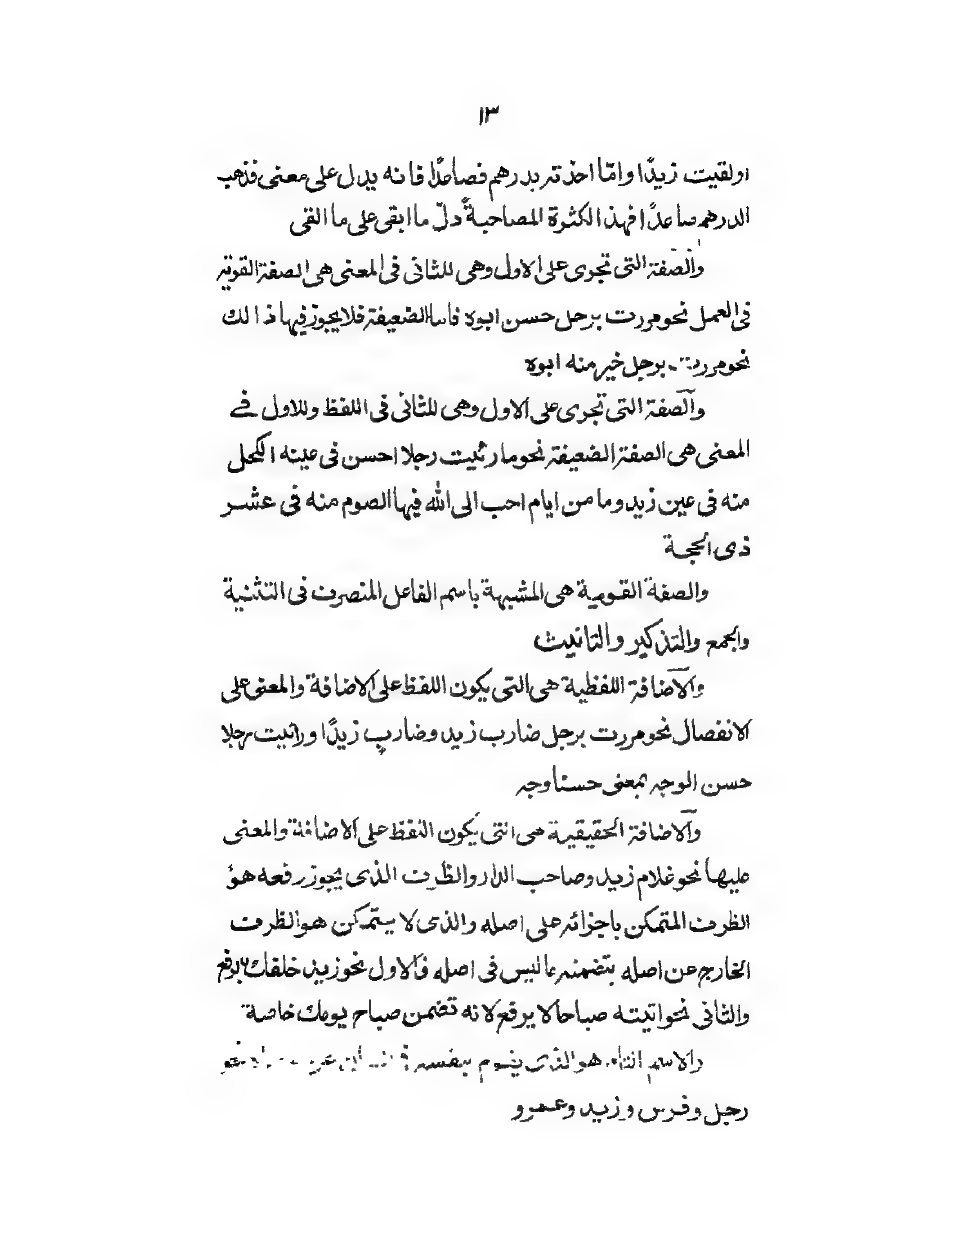 ١٣
اولقيت زيدًا واما اخذته بدرهم فصاعدًا فانه يدل على معنى فذهب
الدرهم صاعدًا فهذا الكثرة المصاحبة دلّ ما ابقى على ما القى
والصفة التى تجرى على الاول وهى للثانى فى المعنى هى الصفة القوية
فى العمل نحو مررت برجل حسن ابوه فاما الضعيفة فلا يجوز فيها ذالك
نحو مررت برجل خير منه ابوه
والصفة التى تجرى على الاول وهى للثانى فى اللفظ وللاول فے
المعنى هى الصفة الضعيفة نحو ما رئيت رجلا احسن فى عينه الكحل
منه فى عين زيد وما من ايام احب الى الله فيها الصوم منه فى عشر
ذى الحجة
والصفة القومية هى المشبهة باسم الفاعل المنصرف فى التثنية
والجمع والتذكير والتانيث
والاضافة اللفظية هى التى يكون اللفظ على الاضافة والمعنى على
الانفصال نحو مررت برجل ضارب زيد وضارب زيدًا ورائيت رجلا
حسن الوجه بمعنى حسنا وجه
والاضافة الحقيقية هى التى يكون اللفظ على الاضافة والمعنى
عليها نحو غلام زيد وصاحب الدار والظرف الذى يجوز رفعه هو
الظرف المتمكن باجزائه على اصله والذى لا يتمكن هو الظرف
الخارج عن اصله بتضمنه ما ليس فى اصله فالاول نحو زيد خلفك يرفع
والثانى نحو اتيته صباحا لا يرفع لانه تضمن صباح يومك خاصة
والاسم التام هو الذى يقوم بنفسه فى عن نحو
رجل وفرس وزيد وعمرو